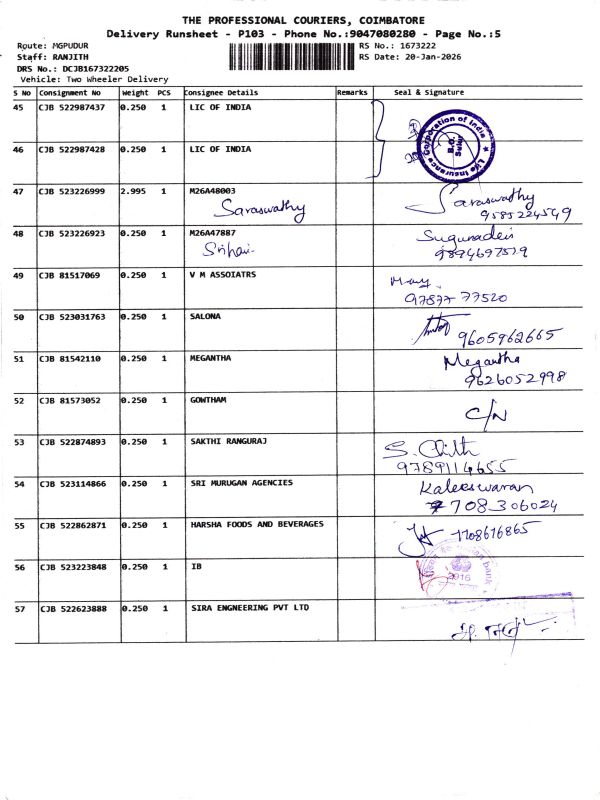 THE PROFESSIONAL COURIERS, COIMBATORE
Delivery Runsheet - P103 - Phone No.:9047080280 - Page No.:5
Route: MGPUDUR
RS No.: 1673222
Staff: RANJITH
RS Date: 20-Jan-2026
DRS No.: DCJB167322205
Vehicle: Two Wheeler Delivery
S No Consignment No Weight PCS Consignee Details Remarks Seal & Signature
45 CJB 522987437 0.250 1 LIC OF INDIA
Life Insurance Corporation of India
B.O.
Sulur
46 CJB 522987428 0.250 1 LIC OF INDIA
47 CJB 523226999 2.995 1 M26A48003 Saraswathy
Saraswathy 9585224549
48 CJB 523226923 0.250 1 M26A47887 Sugunadevi
Srihari 9894697529
49 CJB 81517069 0.250 1 V M ASSOIATRS
97877 77520
50 CJB 523031763 0.250 1 SALONA
9605962665
51 CJB 81542110 0.250 1 MEGANTHA Megantha
9626052998
52 CJB 81573052 0.250 1 GOWTHAM C/N
53 CJB 522874893 0.250 1 SAKTHI RANGURAJ
9789114655
54 CJB 523114866 0.250 1 SRI MURUGAN AGENCIES Kaleeswaran
708306024
55 CJB 522862871 0.250 1 HARSHA FOODS AND BEVERAGES
56 CJB 523223848 0.250 1 IB
57 CJB 522623888 0.250 1 SIRA ENGNEERING PVT LTD